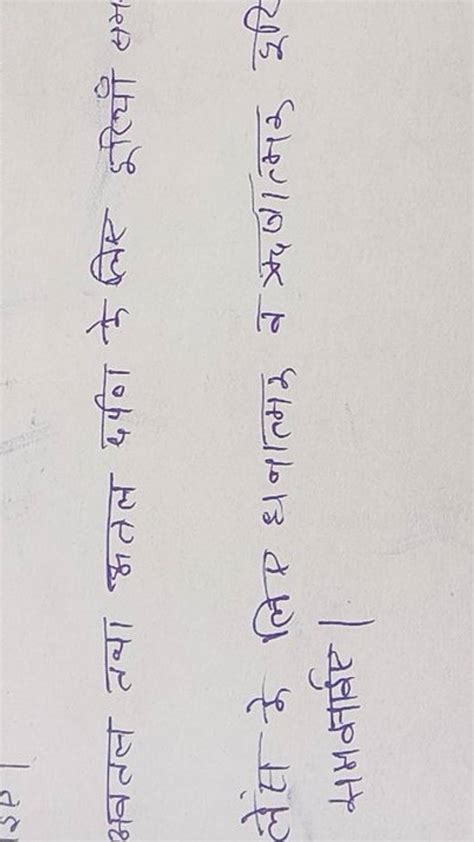 अवतल तथा उत्तल दर्पण के लिए दूरियाँ सम
लेंस के लिए धनात्मक व ऋणात्मक दूरि
समझाईए।